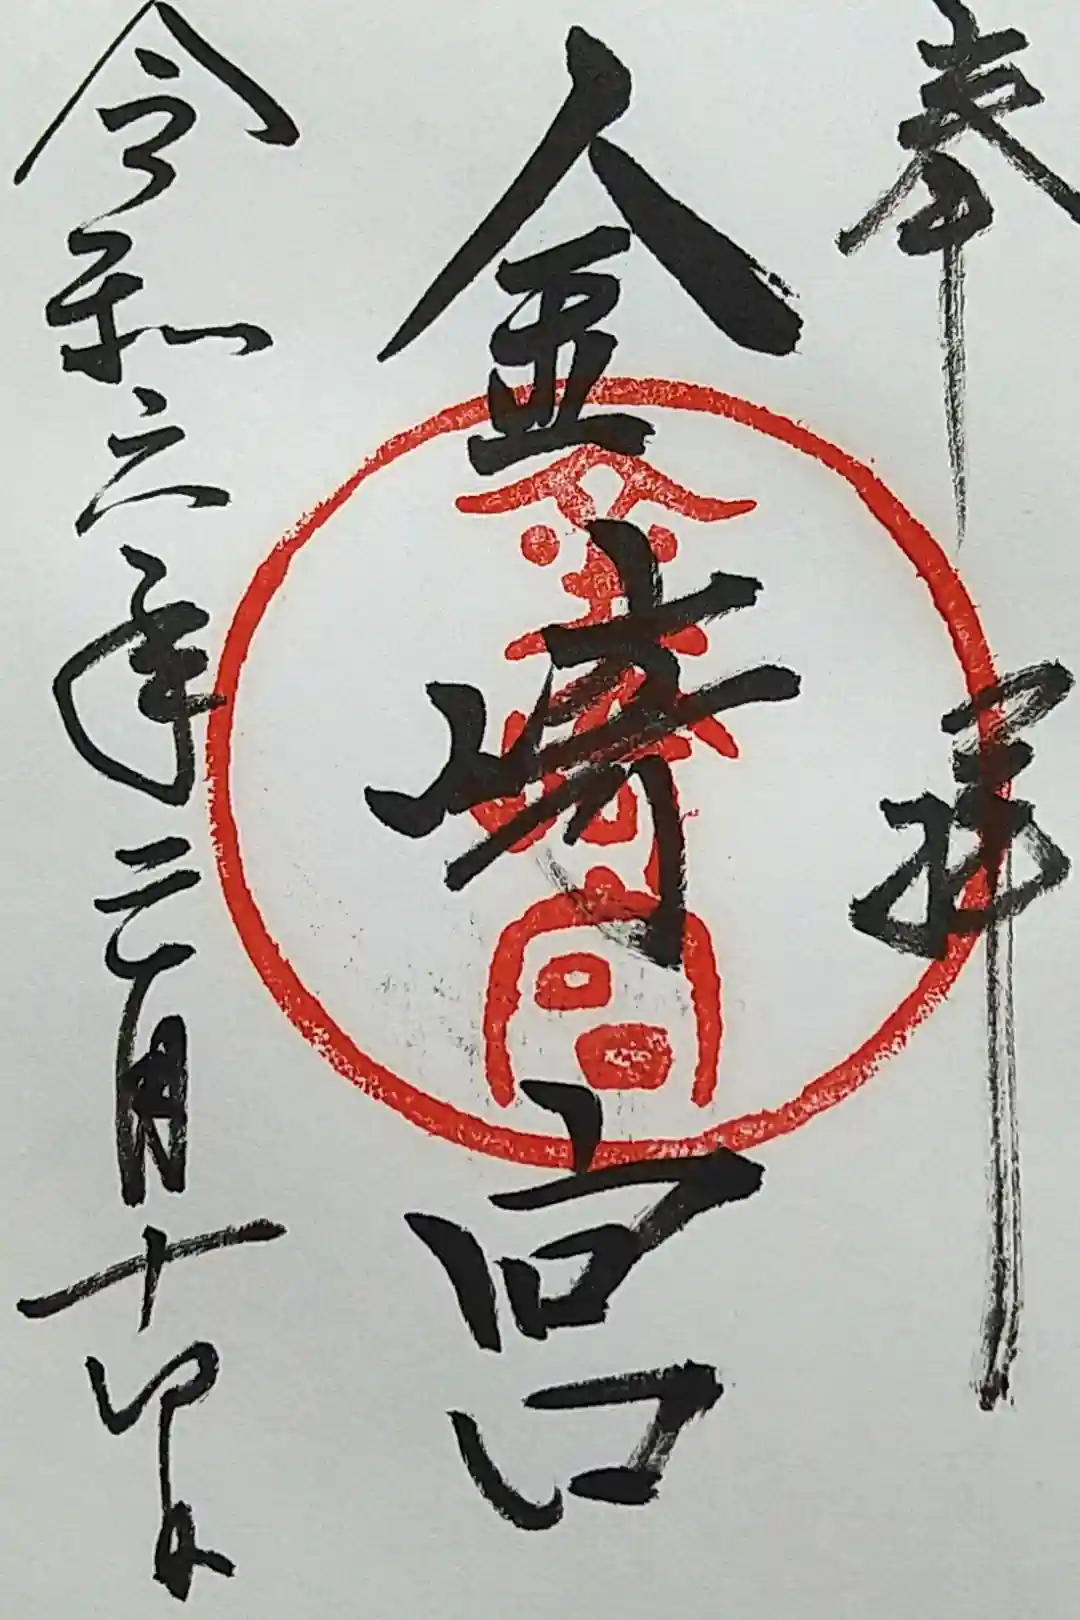 奉拝
金崎宮
金崎宮
令和六年三月十四日